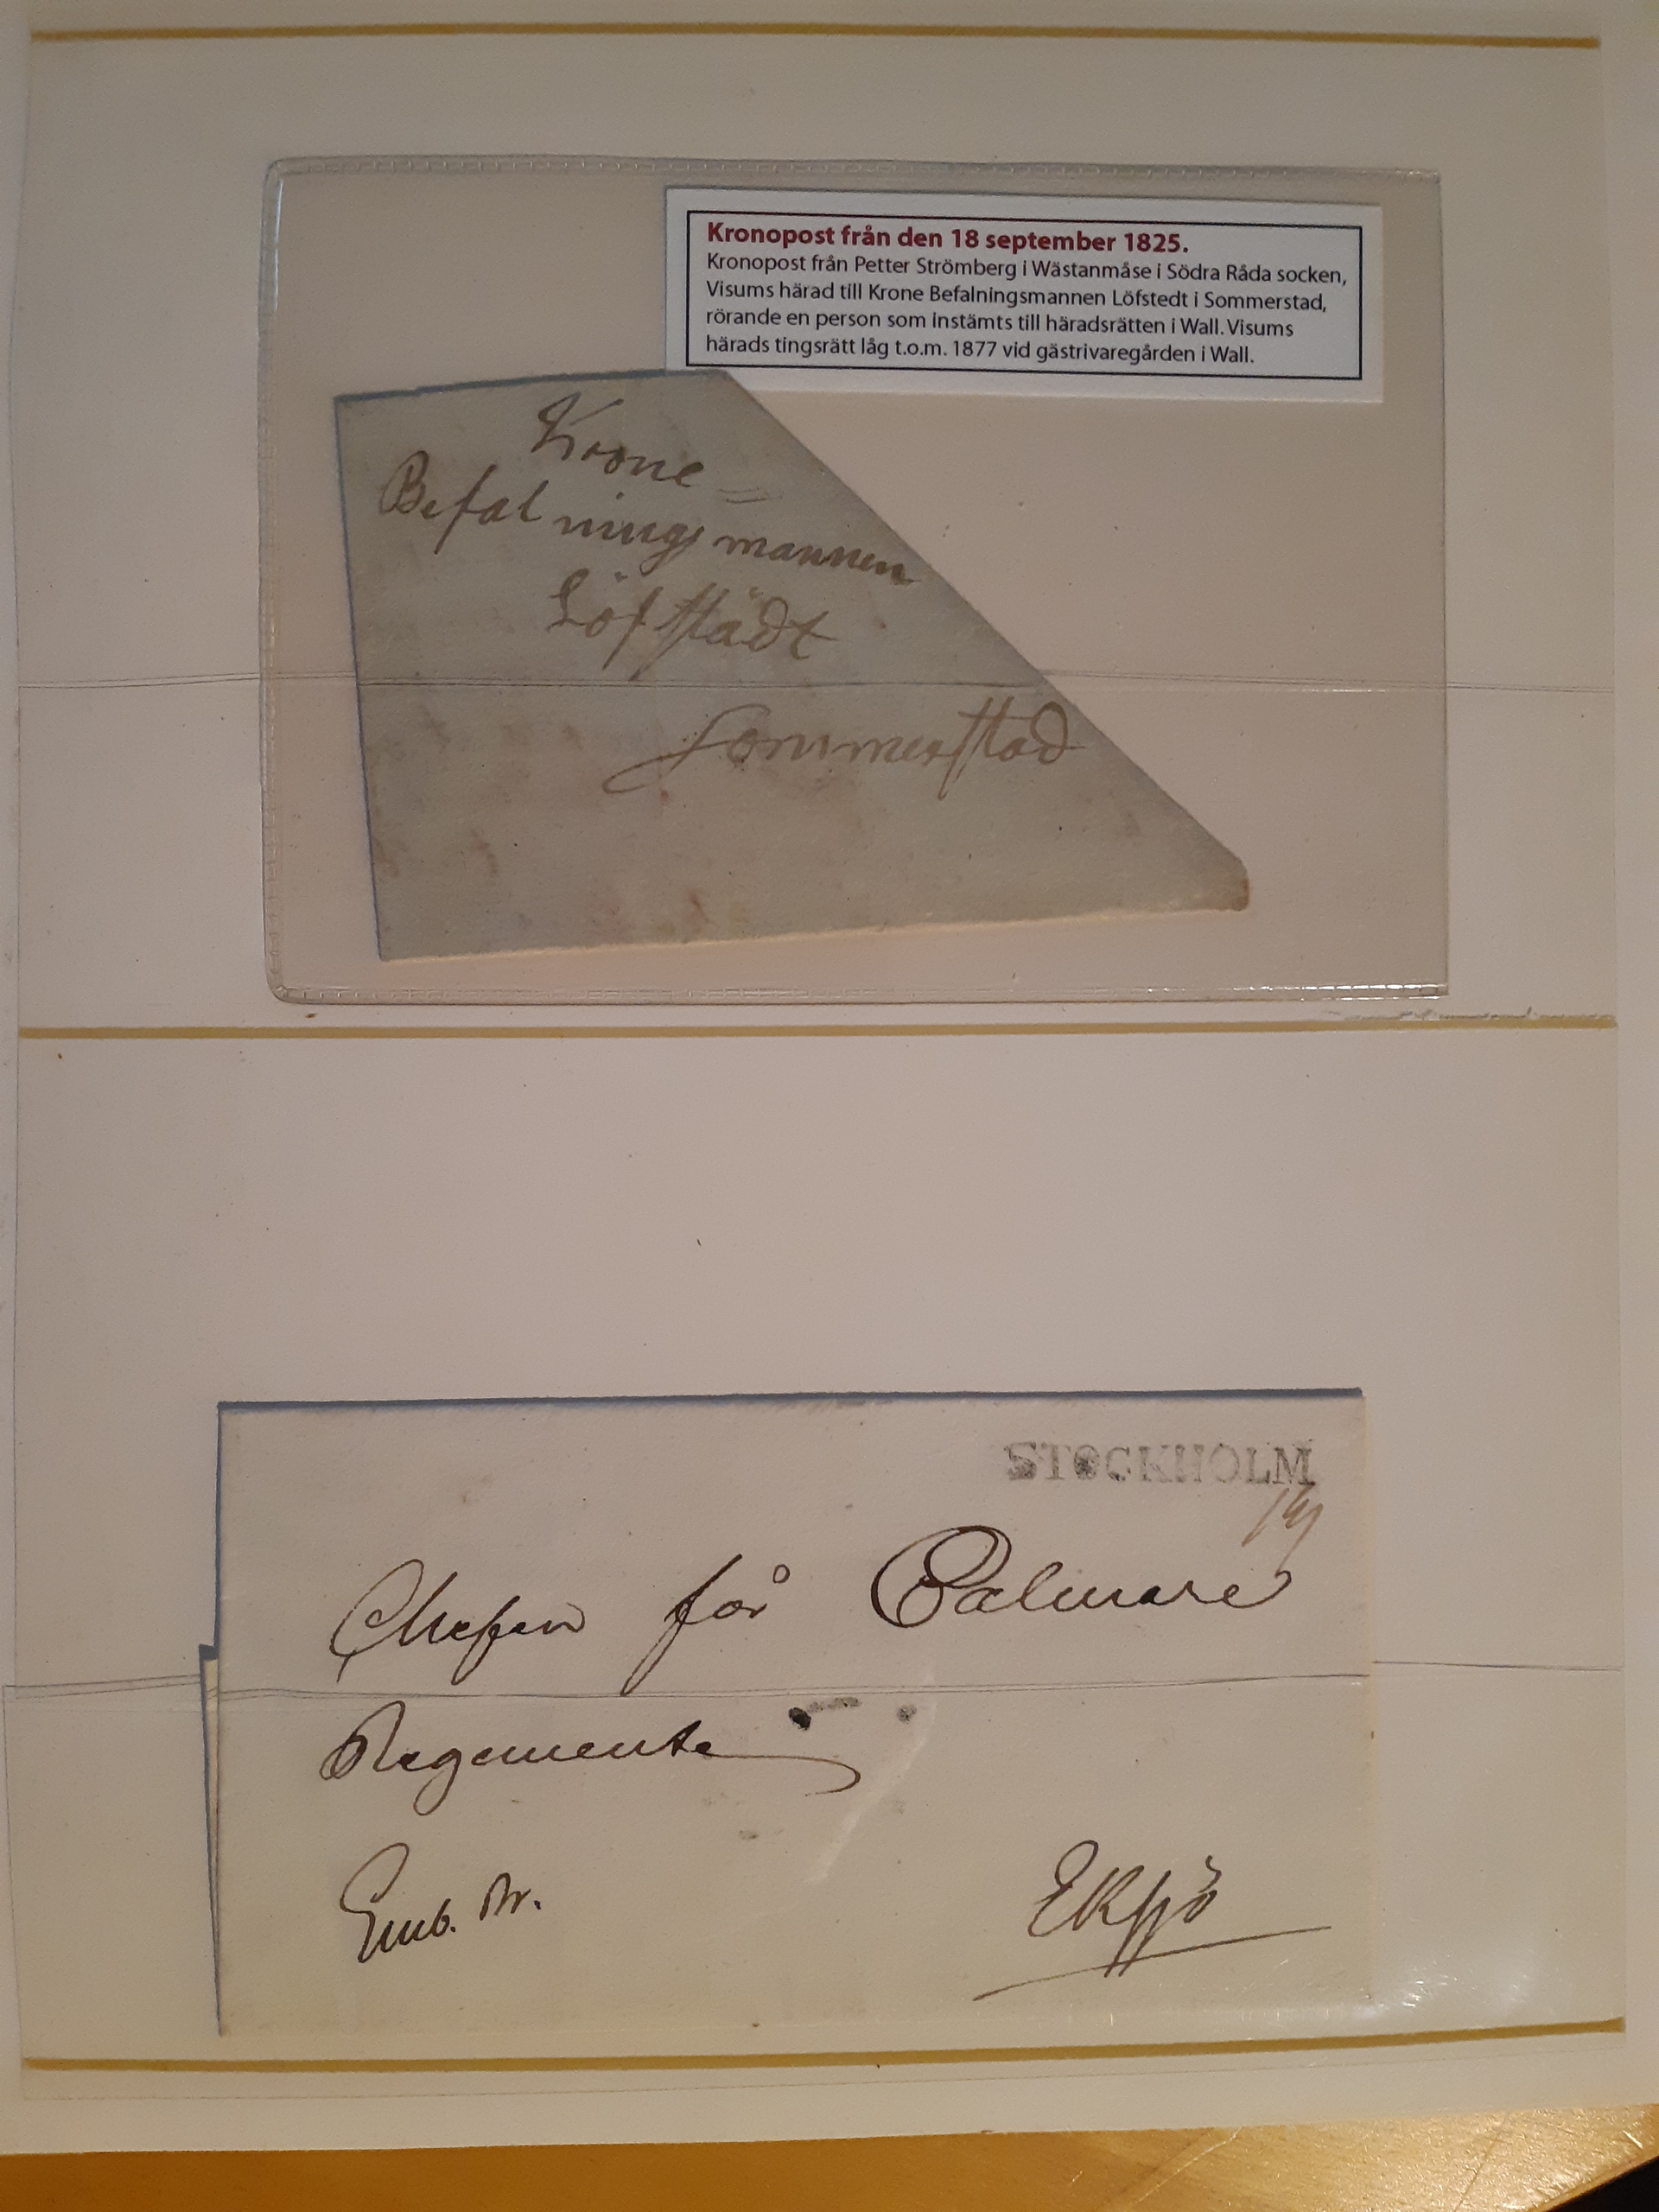 Kronopost från den 18 september 1825.
Kronopost från Petter Strömberg i Wästanmåse i Södra Råda socken,
Visums härad till Krone Befalningsmannen Löfstedt i Sommerstad,
rörande en person som instämts till häradsrätten i Wall. Visums
härads tingsrätt låg t.o.m. 1877 vid gästrivaregården i Wall.
Krone=
Befalningsmannen
Löfstädt
Sommerstad
STOCKHOLM
Chefen för Calmare
Regemente
Emb. Br.
Eksjö